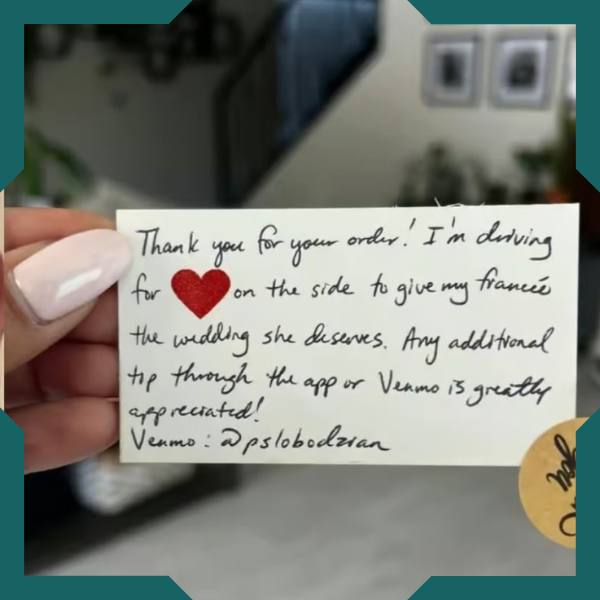 Thank you for your order! I'm driving
for on the side to give my fianceé
the wedding she deserves. Any additional
tip through the app or Venmo is greatly
appreciated!
Venmo: @pslobodzian
you